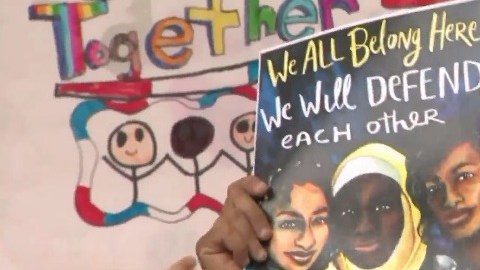 Together
We ALL Belong Here
We Will DEFEND
eACH other